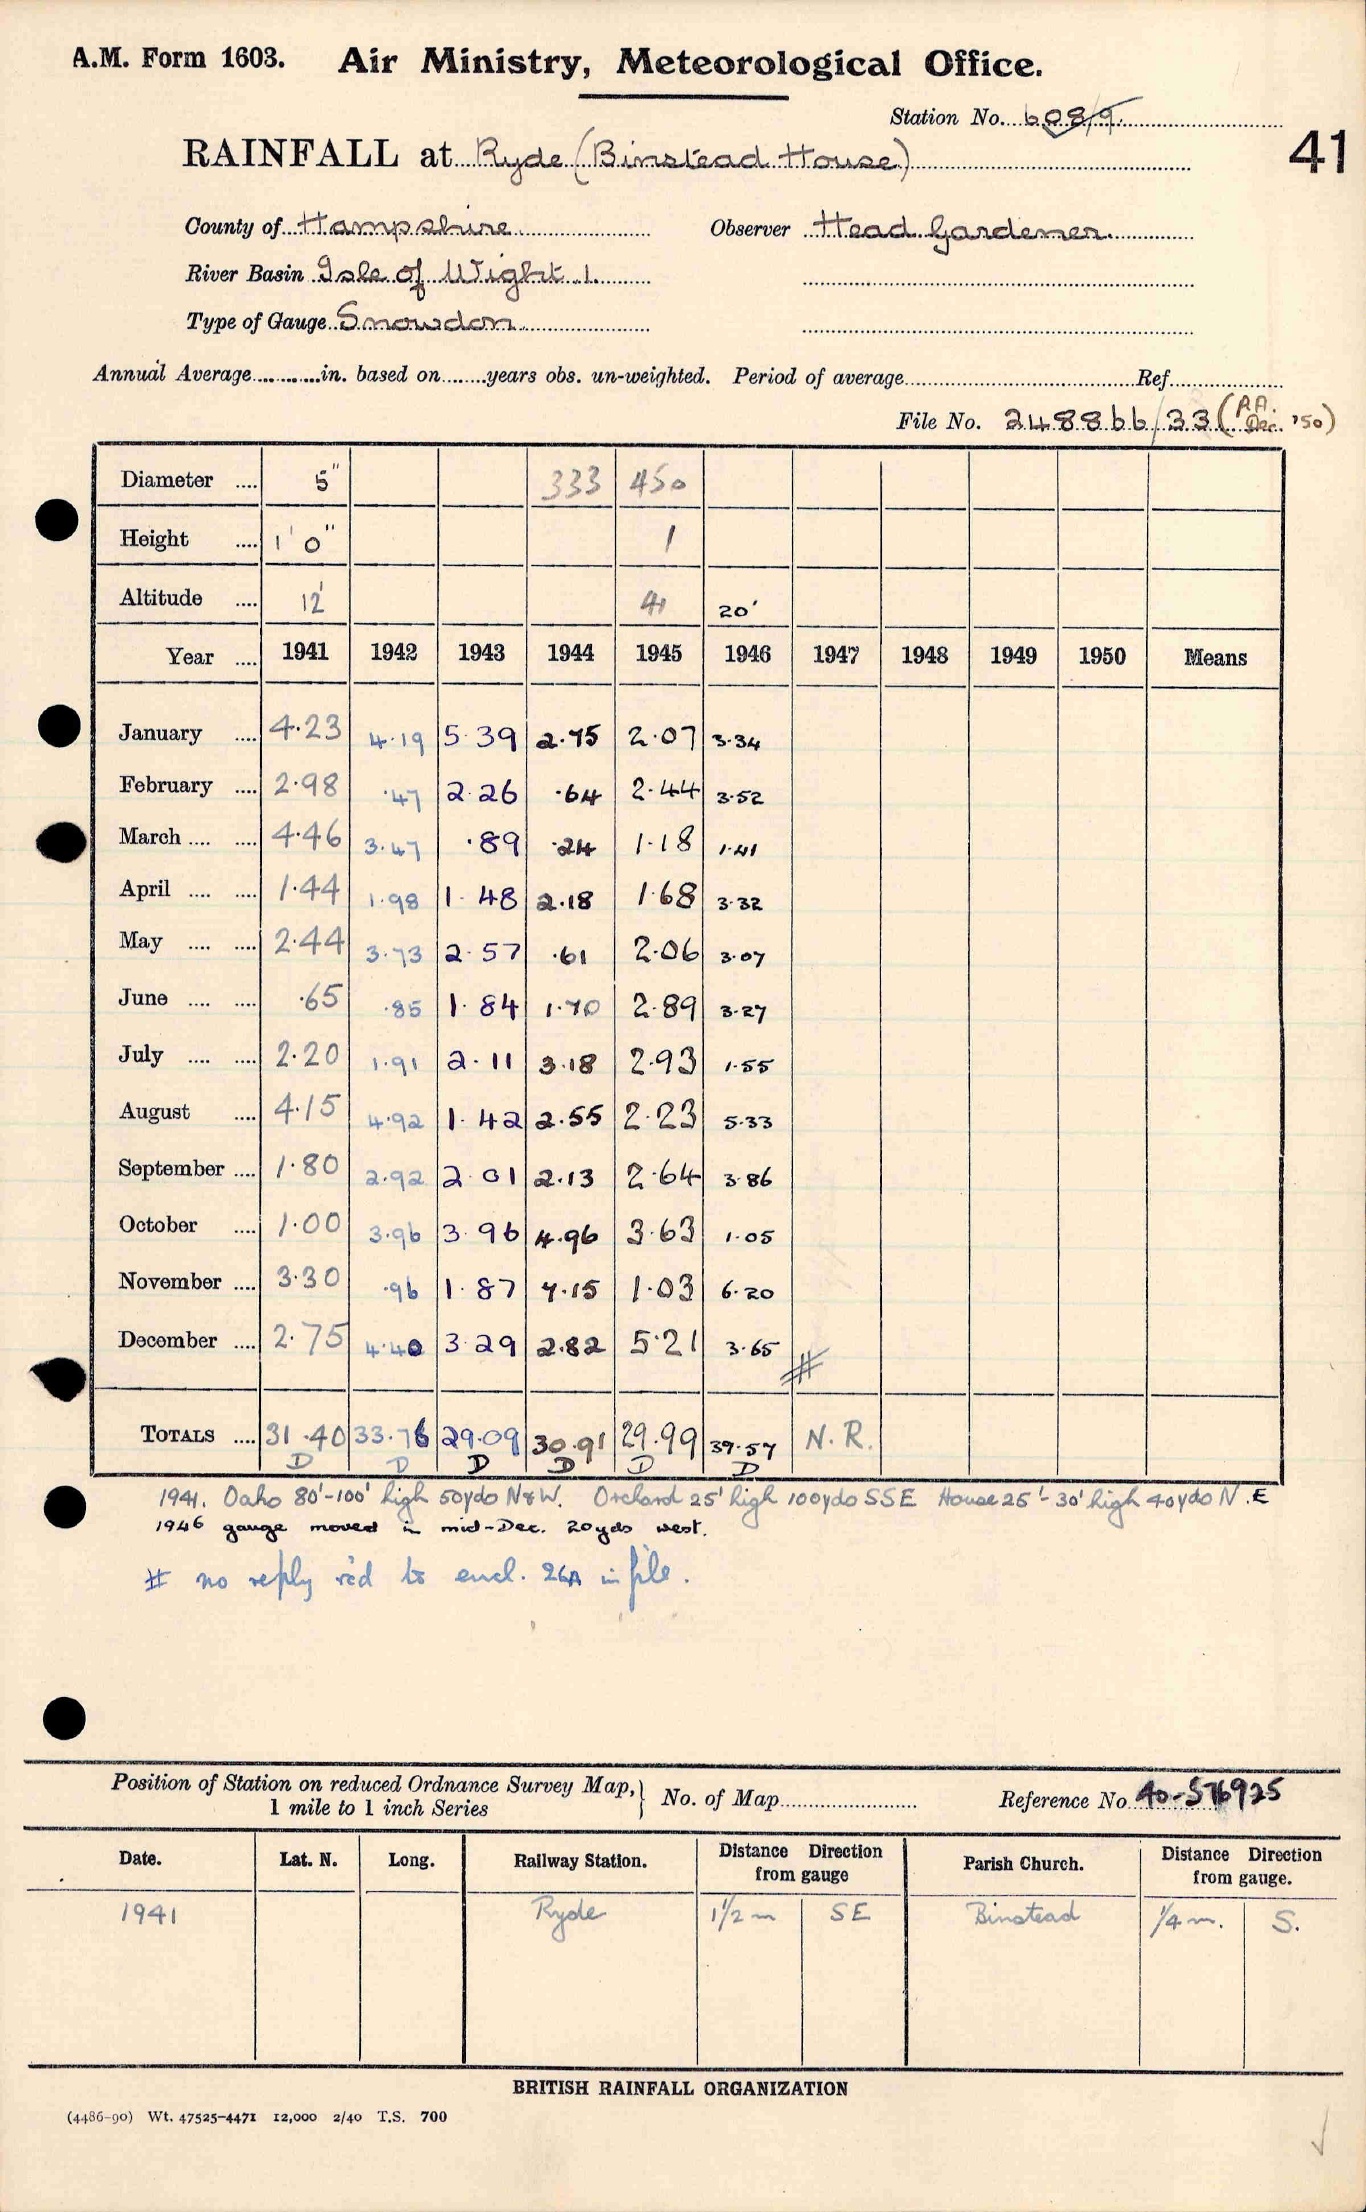 A.M. Form 1603. Air Ministry, Meteorological Office.
Station No. 608/9
41
RAINFALL at Ryde (Binstead House)
County of Hampshire Observer Head Gardener
River Basin Isle of Wight 1.
Type of Gauge Snowdon
Annual Average..........in. based on........years obs. un-weighted. Period of average..........Ref..........
File No. 248866/33 (P.A. Dec. '50)
Diameter .... 5" 333 450
Height .... 1' 0" 1
Altitude .... 12' 41 20'
Year .... 1941 1942 1943 1944 1945 1946 1947 1948 1949 1950 Means
January .... 4.23 4.19 5.39 2.75 2.07 3.34
February .... 2.98 .47 2.26 .64 2.44 3.52
March .... .... 4.46 3.47 .89 .24 1.18 1.41
April .... .... 1.44 1.98 1.48 2.18 1.68 3.32
May .... .... 2.44 3.73 2.57 .61 2.06 3.07
June .... .... .65 .85 1.84 1.70 2.89 3.27
July .... .... 2.20 1.91 2.11 3.18 2.93 1.55
August .... 4.15 4.92 1.42 2.55 2.23 5.33
September .... 1.80 2.92 2.01 2.13 2.64 3.86
October .... 1.00 3.96 3.96 4.96 3.63 1.05
November .... 3.30 .96 1.87 7.15 1.03 6.20
December .... 2.75 4.40 3.29 2.82 5.21 3.65 #
TOTALS .... 31.40 33.76 29.09 30.91 29.99 39.57 N.R.
D D D D D D
1941. Oaks 80'-100' high 50yds N&W. Orchard 25' high 100yds SSE House 25'-30' high 40yds N.E
1946 gauge moved in mid-Dec. 20yds west.
# no reply rc'd to encl. 26A in file.
Position of Station on reduced Ordnance Survey Map, 1 mile to 1 inch Series } No. of Map.......... Reference No. 40-576925
Date. Lat. N. Long. Railway Station. Distance Direction from gauge Parish Church. Distance Direction from gauge.
1941 Ryde 1 1/2 m SE Binstead 1/4 m. S.
BRITISH RAINFALL ORGANIZATION
(4486-90) Wt. 47525-4471 12,000 2/40 T.S. 700